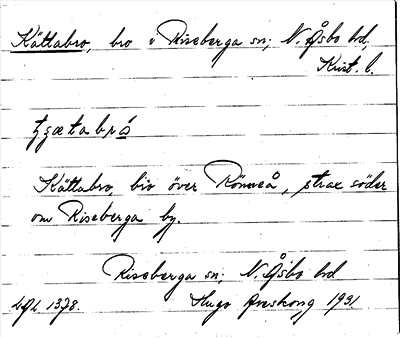 Kättabro, bro i Riseberga sn; N. Åsbo hd,
Krist. l.
Kättabro, bro över Rönneå, strax söder
om Riseberga by.
Riseberga sn; N. Åsbo hd
1378. Hugo Areskog 1931